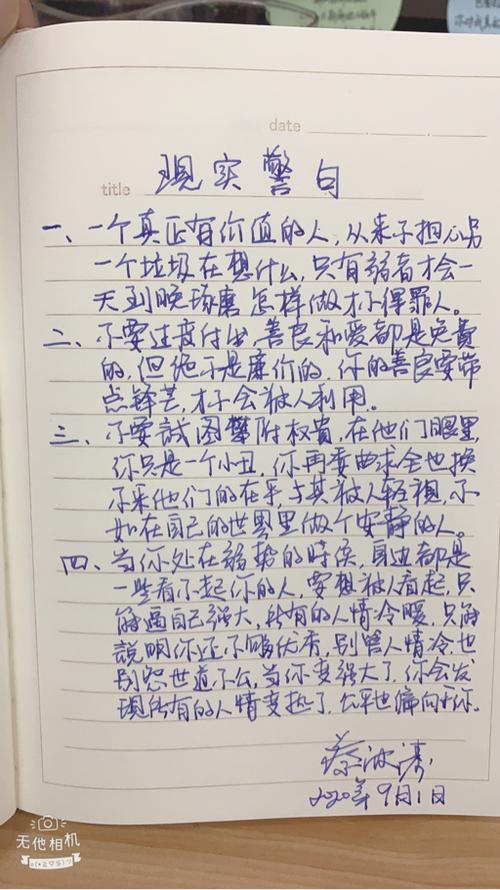 date
title 现实警句
一、一个真正有价值的人，从来不担心另
一个垃圾在想什么，只有弱者才会一
天到晚琢磨怎样做才不得罪人。
二、不要过度付出，善良和爱都是免費
的，但绝不是廉价的，你的善良要带
点锋芒，才不会被人利用。
三、不要試图攀附权貴，在他们眼里，
你只是一个小丑，你再委曲求全也换
不来他们的在乎，与其被人轻視，不
如在自己的世界里做个安静的人。
四、当你处在弱势的時侯，身边都是
一些看不起你的人，要想被人看起，只
能逼自己强大，所有的人情冷暖，只能
説明你还不够优秀，别管人情冷，也
别怨世道不公，当你变强大了，你会发
现所有的人情变热了，公平也偏向于你。
蔡波涛
2020年9月1日
无他相机